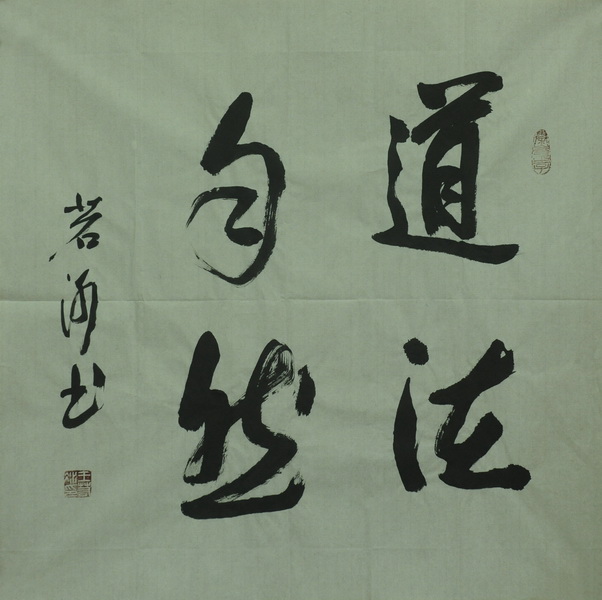 道法
自然
若海书